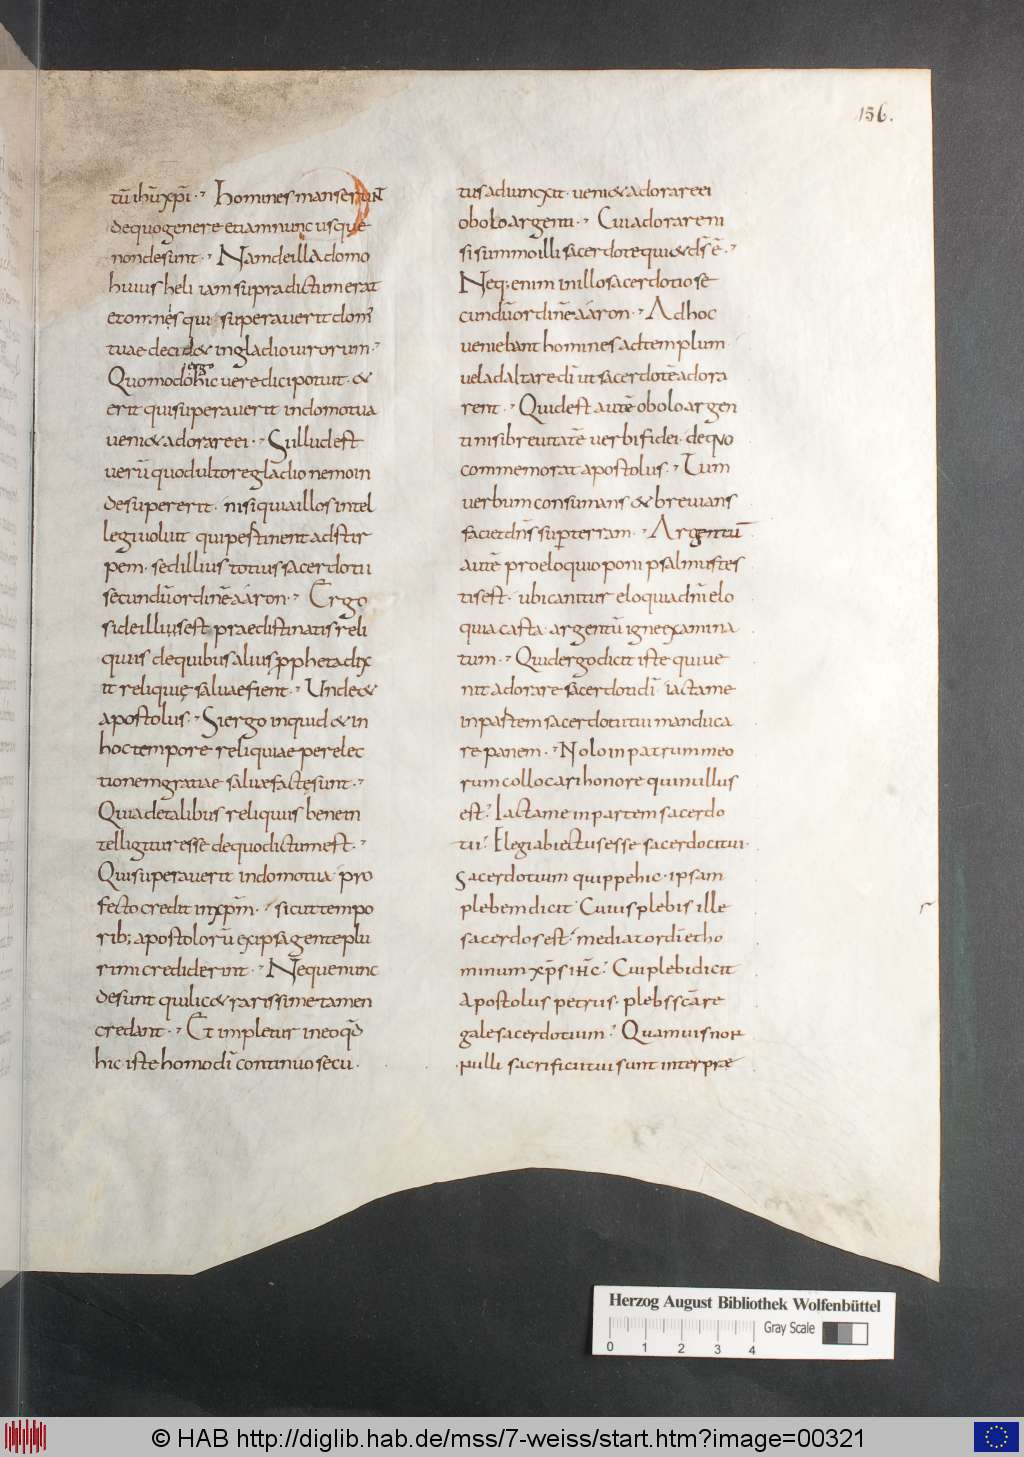 156.
tū ihū xp̄i. Homines manserunt
de quo genere etiam nunc usque
non desunt. Nam de illa domo
huius heli iam supra dictum erat
et omnes qui superaverit dom̄
tuae decidet in gladio virorum.
Quomodo ergo hic vere dici potuit. &
erit qui superaverit in domo tua
veniet adorare ei. Si illud est
verū quod ultore gladio nemo in
de supererit. nisi quia illos intel
legi voluit qui pertinent ad stir
pem. sed illius totius sacerdotii
secundū ordinē aaron. Ergo
si de illius est praedistinatis reli
quiis de quibus alius propheta dix
it reliquię salvae fient. Unde &
apostolus. Si ergo inquid & in
hoc tempore reliquiae per elec
tionem gratiae salvae factę sunt.
Quia de talibus reliquiis bene in
telligitur esse de quo dictum est.
Qui superaverit in domo tua pro
fecto credit in xp̄m. sicut tempo
rib; apostolorū ex ipsa gente plu
rimi crediderunt. Neque nunc
desunt qui lic& rarissime tamen
credant. Et impletur in eo qđ
hic iste homo dī continuo secu.
tus adiuncxit. veni& adorare ei
obolo argenti. Cui adorare ni
si summo illi sacerdote qui & dš ē.
Neq; enim in illo sacerdotio se
cundū ordinē aaron. Ad hoc
veniebant homines ad templum
vel ad altare dī ut sacerdotē adora
rent. Quid est autē obolo argen
ti nisi brevitatē verbi fidei. de quo
commemorat apostolus. Tum
verbum consumans & brevians
faciet dn̄s super terram. Argentū
autē pro eloquio poni psalmistes
tis est. ubi canitur eloquia dn̄i elo
quia casta. argentū igne examina
tum. Quid ergo dicit iste qui ve
nit adorare sacerdoti dī iacta me
in partem sacerdotii tui manduca
re panem. Nolo in patrum meo
rum collocari honore qui nullus
est. Iacta me in partem sacerdo
tii. Elegi abiectus esse sacerdocii tui.
Sacerdotium quippe hic. ipsam
plebem dicit Cuius plebis ille
sacerdos est. mediator dī et ho
minum xp̄s ih̄c. Cui plebi dicit
apostolus petrus. plebs scā re
gale sacerdotium. Quamvis non
nulli sacrificii tui sunt interprae
Herzog August Bibliothek Wolfenbüttel
Gray Scale
0 1 2 3 4
© HAB http://diglib.hab.de/mss/7-weiss/start.htm?image=00321